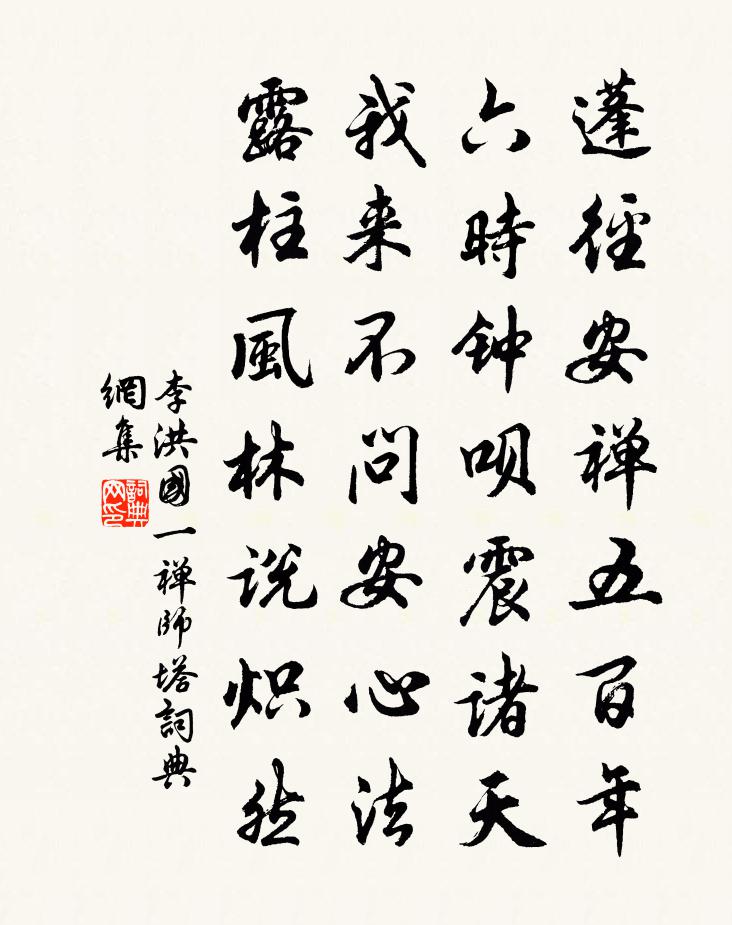 蓬徑安禅五百年
六時钟呗震諸天
我来不問安心法
露柱風林说炽然
李洪國一禅師塔詞典
網集
詞典
网印